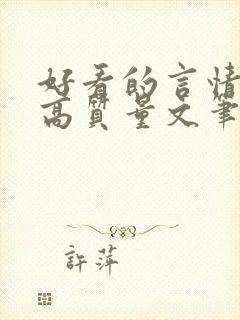 好看的言情
高质量文笔
許萍